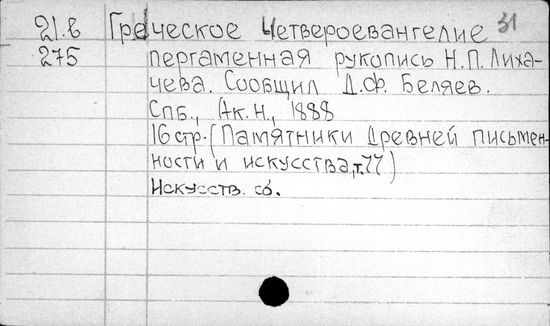 21.в Греческое Четвероевангелие 31
275 пергаменная рукопись Н.П. Лиха-
чева. Сообщил Д.Ф. Беляев.
Спб., Ак. Н., 1888
16 стр. (Памятники древней письмен-
ности и искусства, т. 77)
Искусств. сб.